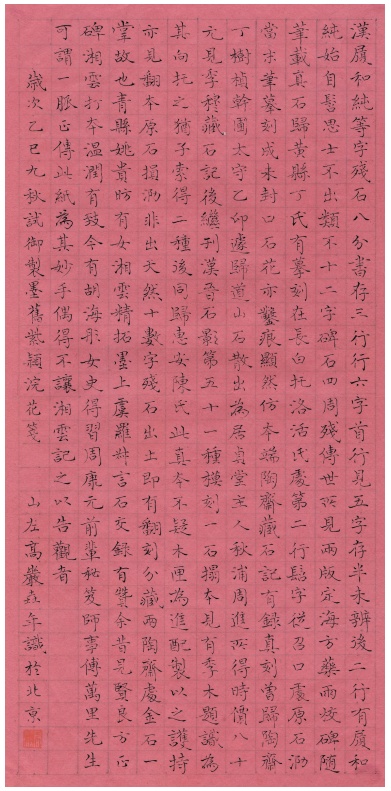 漢履和純等字殘石八分書存三行行六字首行見五字存半未辨後二行有履和
純始自髫思士不出類不十二字碑石四周殘傳世所見兩版定海方藥雨校碑隨
筆載真石歸黃縣丁氏有摹刻在長白托洛活氏處第二行髫字從召口處原石泐
當末筆摹刻成未封口石花亦鑿痕顯然仿本端陶齋藏石記有錄真刻曾歸陶齋
丁樹楨幹圃太守乙卯遽歸道山石散出為居貞堂主人秋浦周進所得時價八十
元見季穆藏石記後繼刊漢晉石影第五十一種模刻一石搨本見有季木題識為
其向托之猶子索得二種後同歸惠安陳氏此真本不疑木匣為進配製以之護持
亦見翻本原石搨泐非出天然十數字殘石出土即有翻刻分藏兩陶齋處金石一
掌故也青縣姚貴昉有女湘雲精拓墨上虞羅叔言石交錄有雙余昔見賢良方正
碑湘雲打本溫潤有致今有胡海彤女史得習周康元前輩秘笈師事傅萬里先生
可謂一脈正傳此紙為其妙手偶得不讓湘雲記之以告觀者
歲次乙巳九秋試御製墨舊紫穎浣花箋 山左高巖垚年識於北京